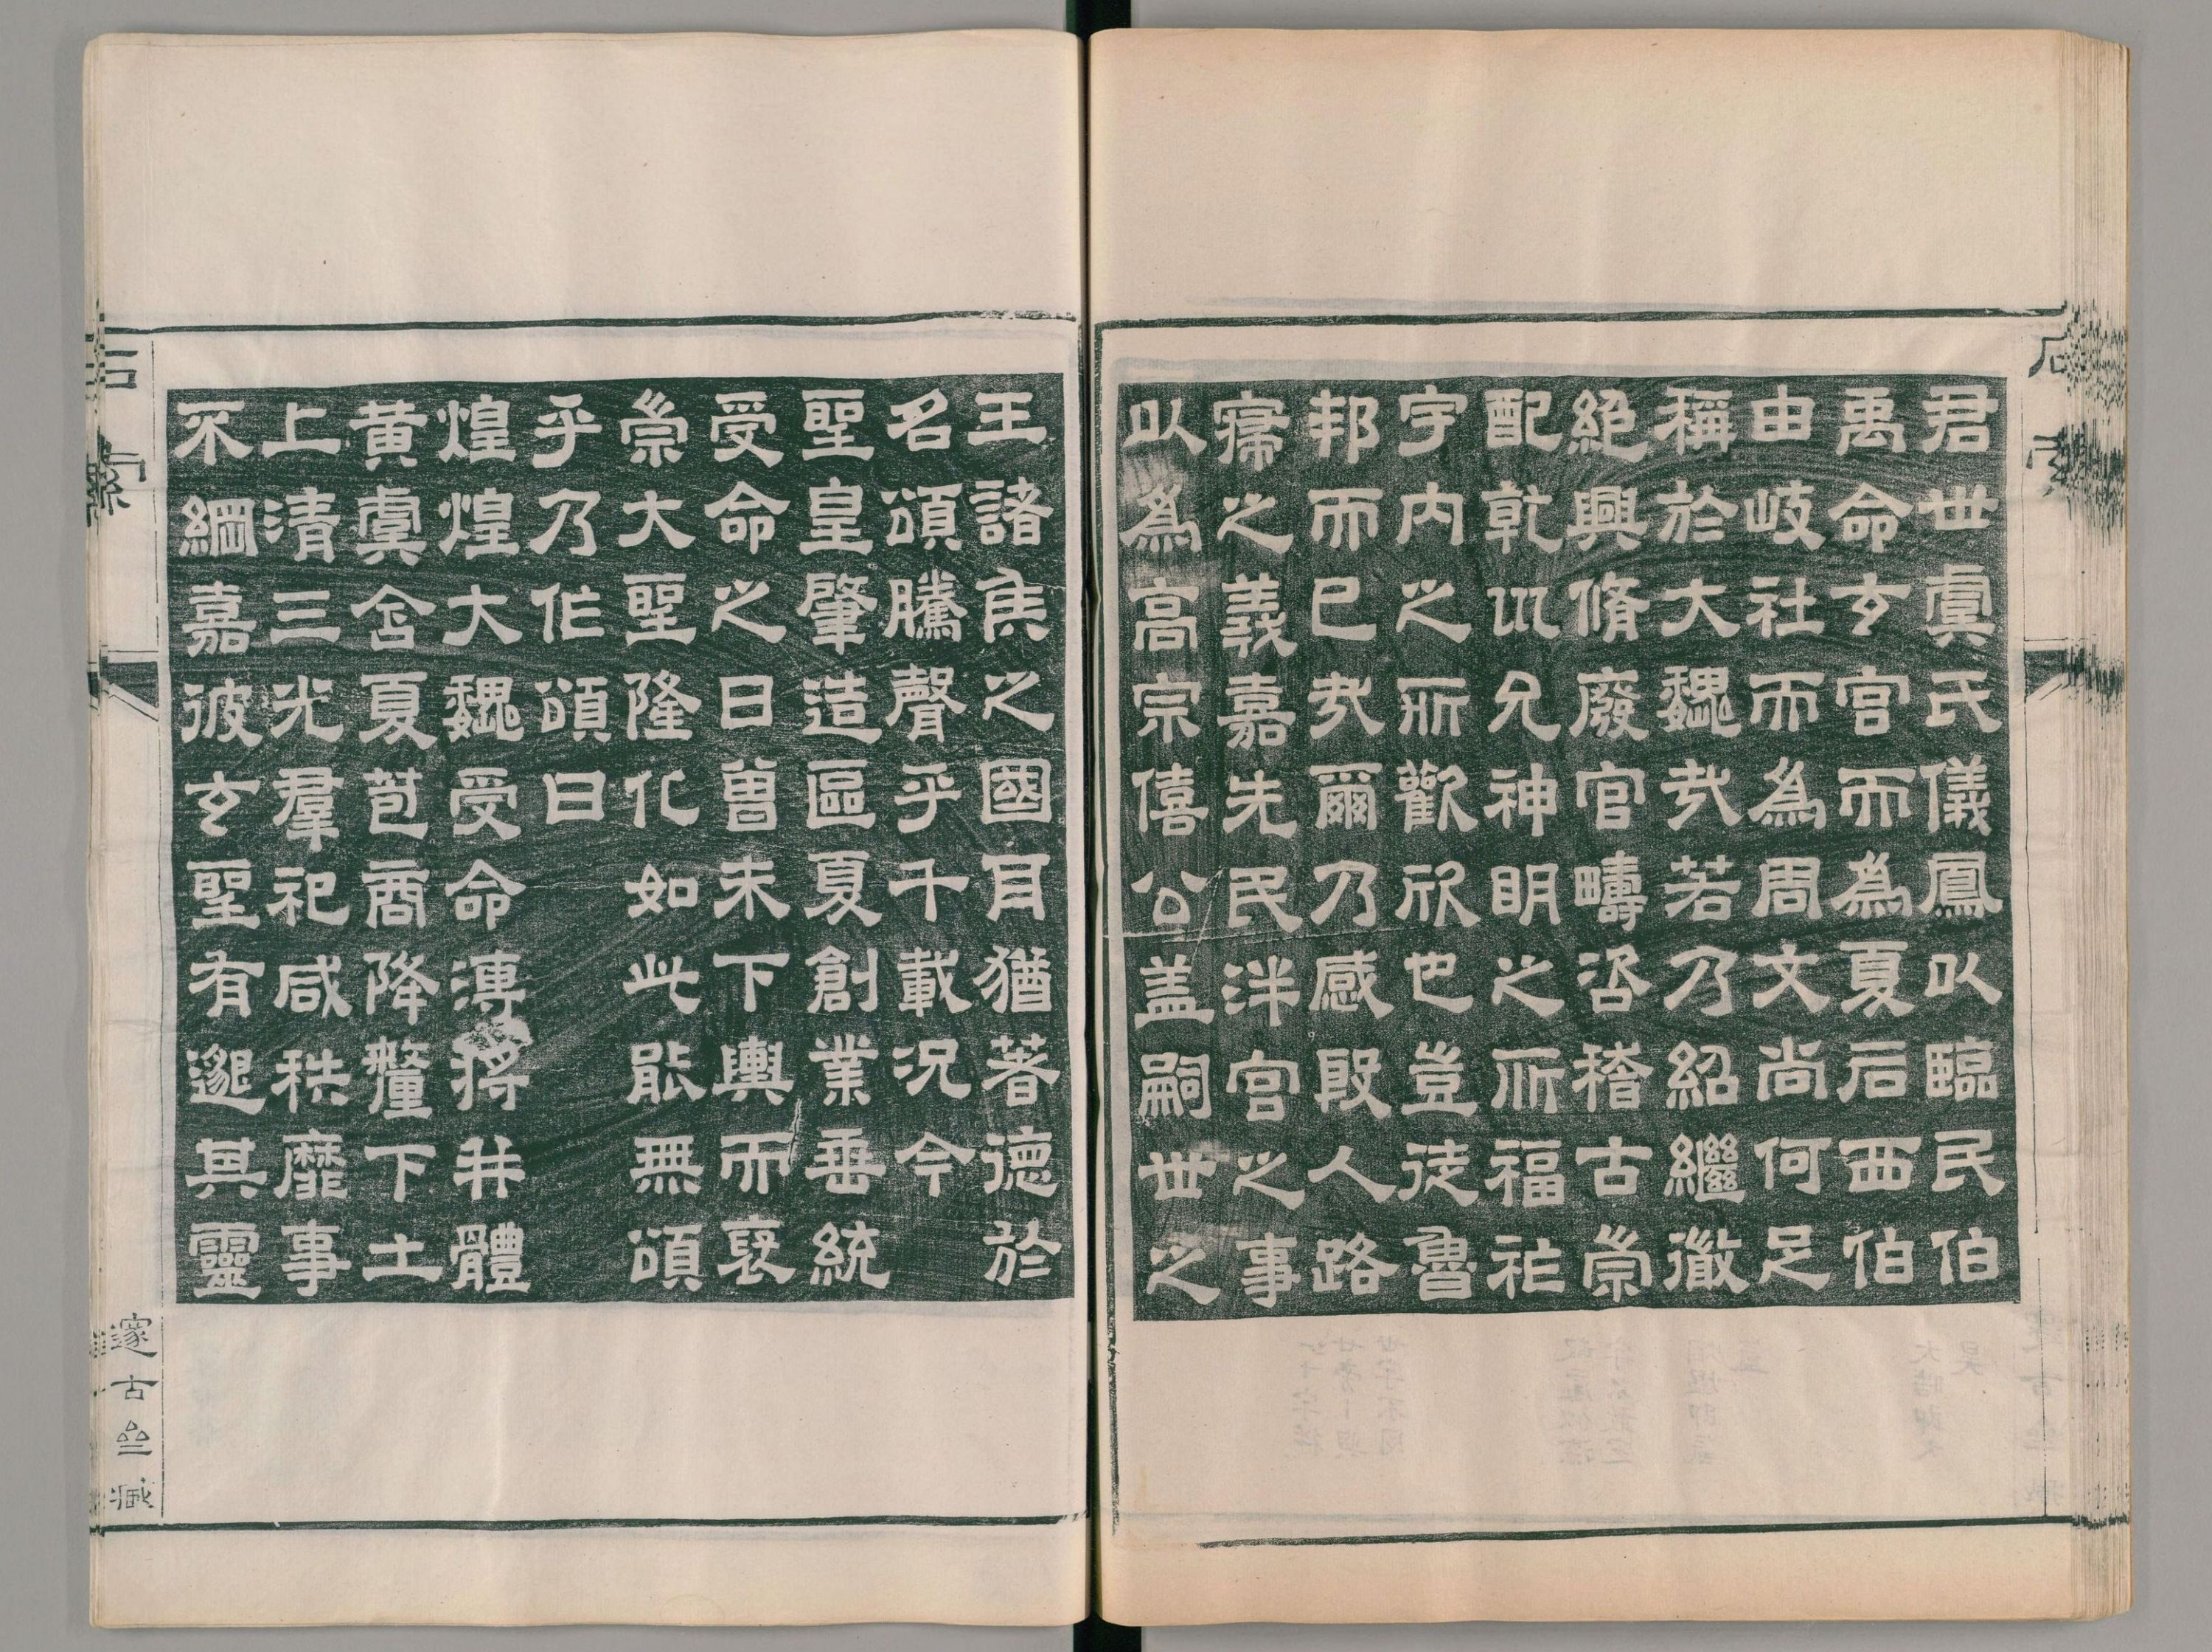 君世虞氏儀鳳以臨民伯
禹命玄宮而為夏后西伯
由岐社而為周文尚何足
稱於大魏㢤若乃紹繼徽
絕興脩廢官疇咨稽古崇
配乾巛允神明之所福祉
宇內之所歡欣也豈徒魯
邦而已㢤爾乃感殷人路
寢之義嘉先民泮宮之事
以為高宗僖公盖嗣世之
王諸侯之國耳猶著德於
名頌騰聲乎千載況今
聖皇肇造區夏創業垂統
受命之日曾未下輿而褒
崇大聖隆化如此能無頌
乎乃作頌曰
煌煌大魏受命溥將并體
黃虞含夏苞商降釐下土
上清三光羣祀咸秩靡事
不綱嘉彼玄聖有邈其靈
石索
邃古齋藏
石索